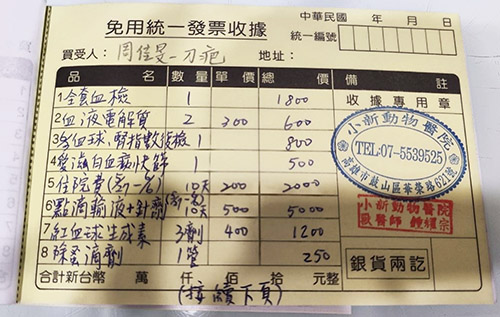 免用統一發票收據
中華民國 年 月 日
統一編號
買受人：周佳旻－刀疤 地址：
品名 數量 單價 總價 備註
1 全套血檢 1 1800
2 血液電解質 2 300 600
3 血球、腎指數復檢 1 800
4 愛滋白血病快篩 1 500
5 住院費(8/1-8/10) 10天 200 2000
6 點滴輸液+針劑 10天 500 5000
7 紅血球生成素 3劑 400 1200
8 除蚤滴劑 1管 250
合計新台幣 萬 仟 佰 拾 元整
(接續下頁)
收據專用章
小新動物醫院
TEL:07-5539525
高雄市鼓山區華榮路621號
小新動物醫院
獸醫師 鍾耀宗
銀貨兩訖